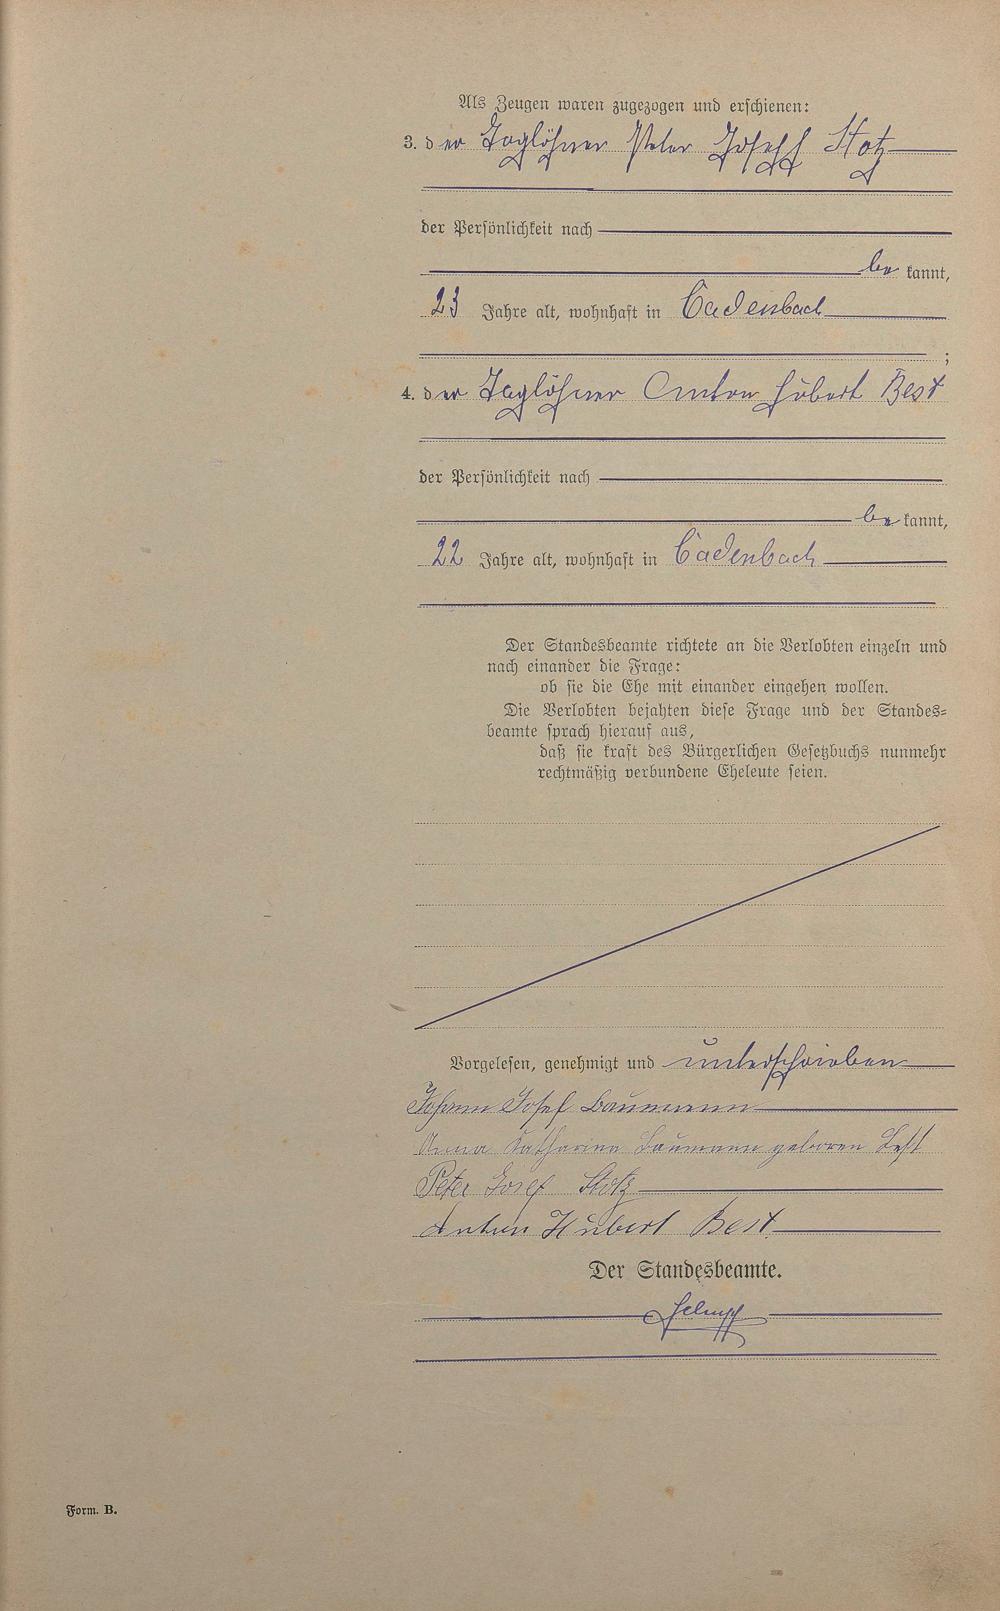 Als Zeugen waren zugezogen und erschienen:
3. der Taglöhner Peter Joseph Stotz
der Persönlichkeit nach
bekannt,
23 Jahre alt, wohnhaft in Cadenbach
;
4. der Taglöhner Anton Hubert Best
der Persönlichkeit nach
bekannt,
22 Jahre alt, wohnhaft in Cadenbach
Der Standesbeamte richtete an die Verlobten einzeln und
nach einander die Frage:
ob sie die Ehe mit einander eingehen wollen.
Die Verlobten bejahten diese Frage und der Standes-
beamte sprach hierauf aus,
daß sie kraft des Bürgerlichen Gesetzbuchs nunmehr
rechtmäßig verbundene Eheleute seien.
Vorgelesen, genehmigt und unterschrieben
Johann Josef Baumann
Anna Katharina Baumann geboren Best
Peter Josef Stotz
Anton Hubert Best
Der Standesbeamte.
Form. B.